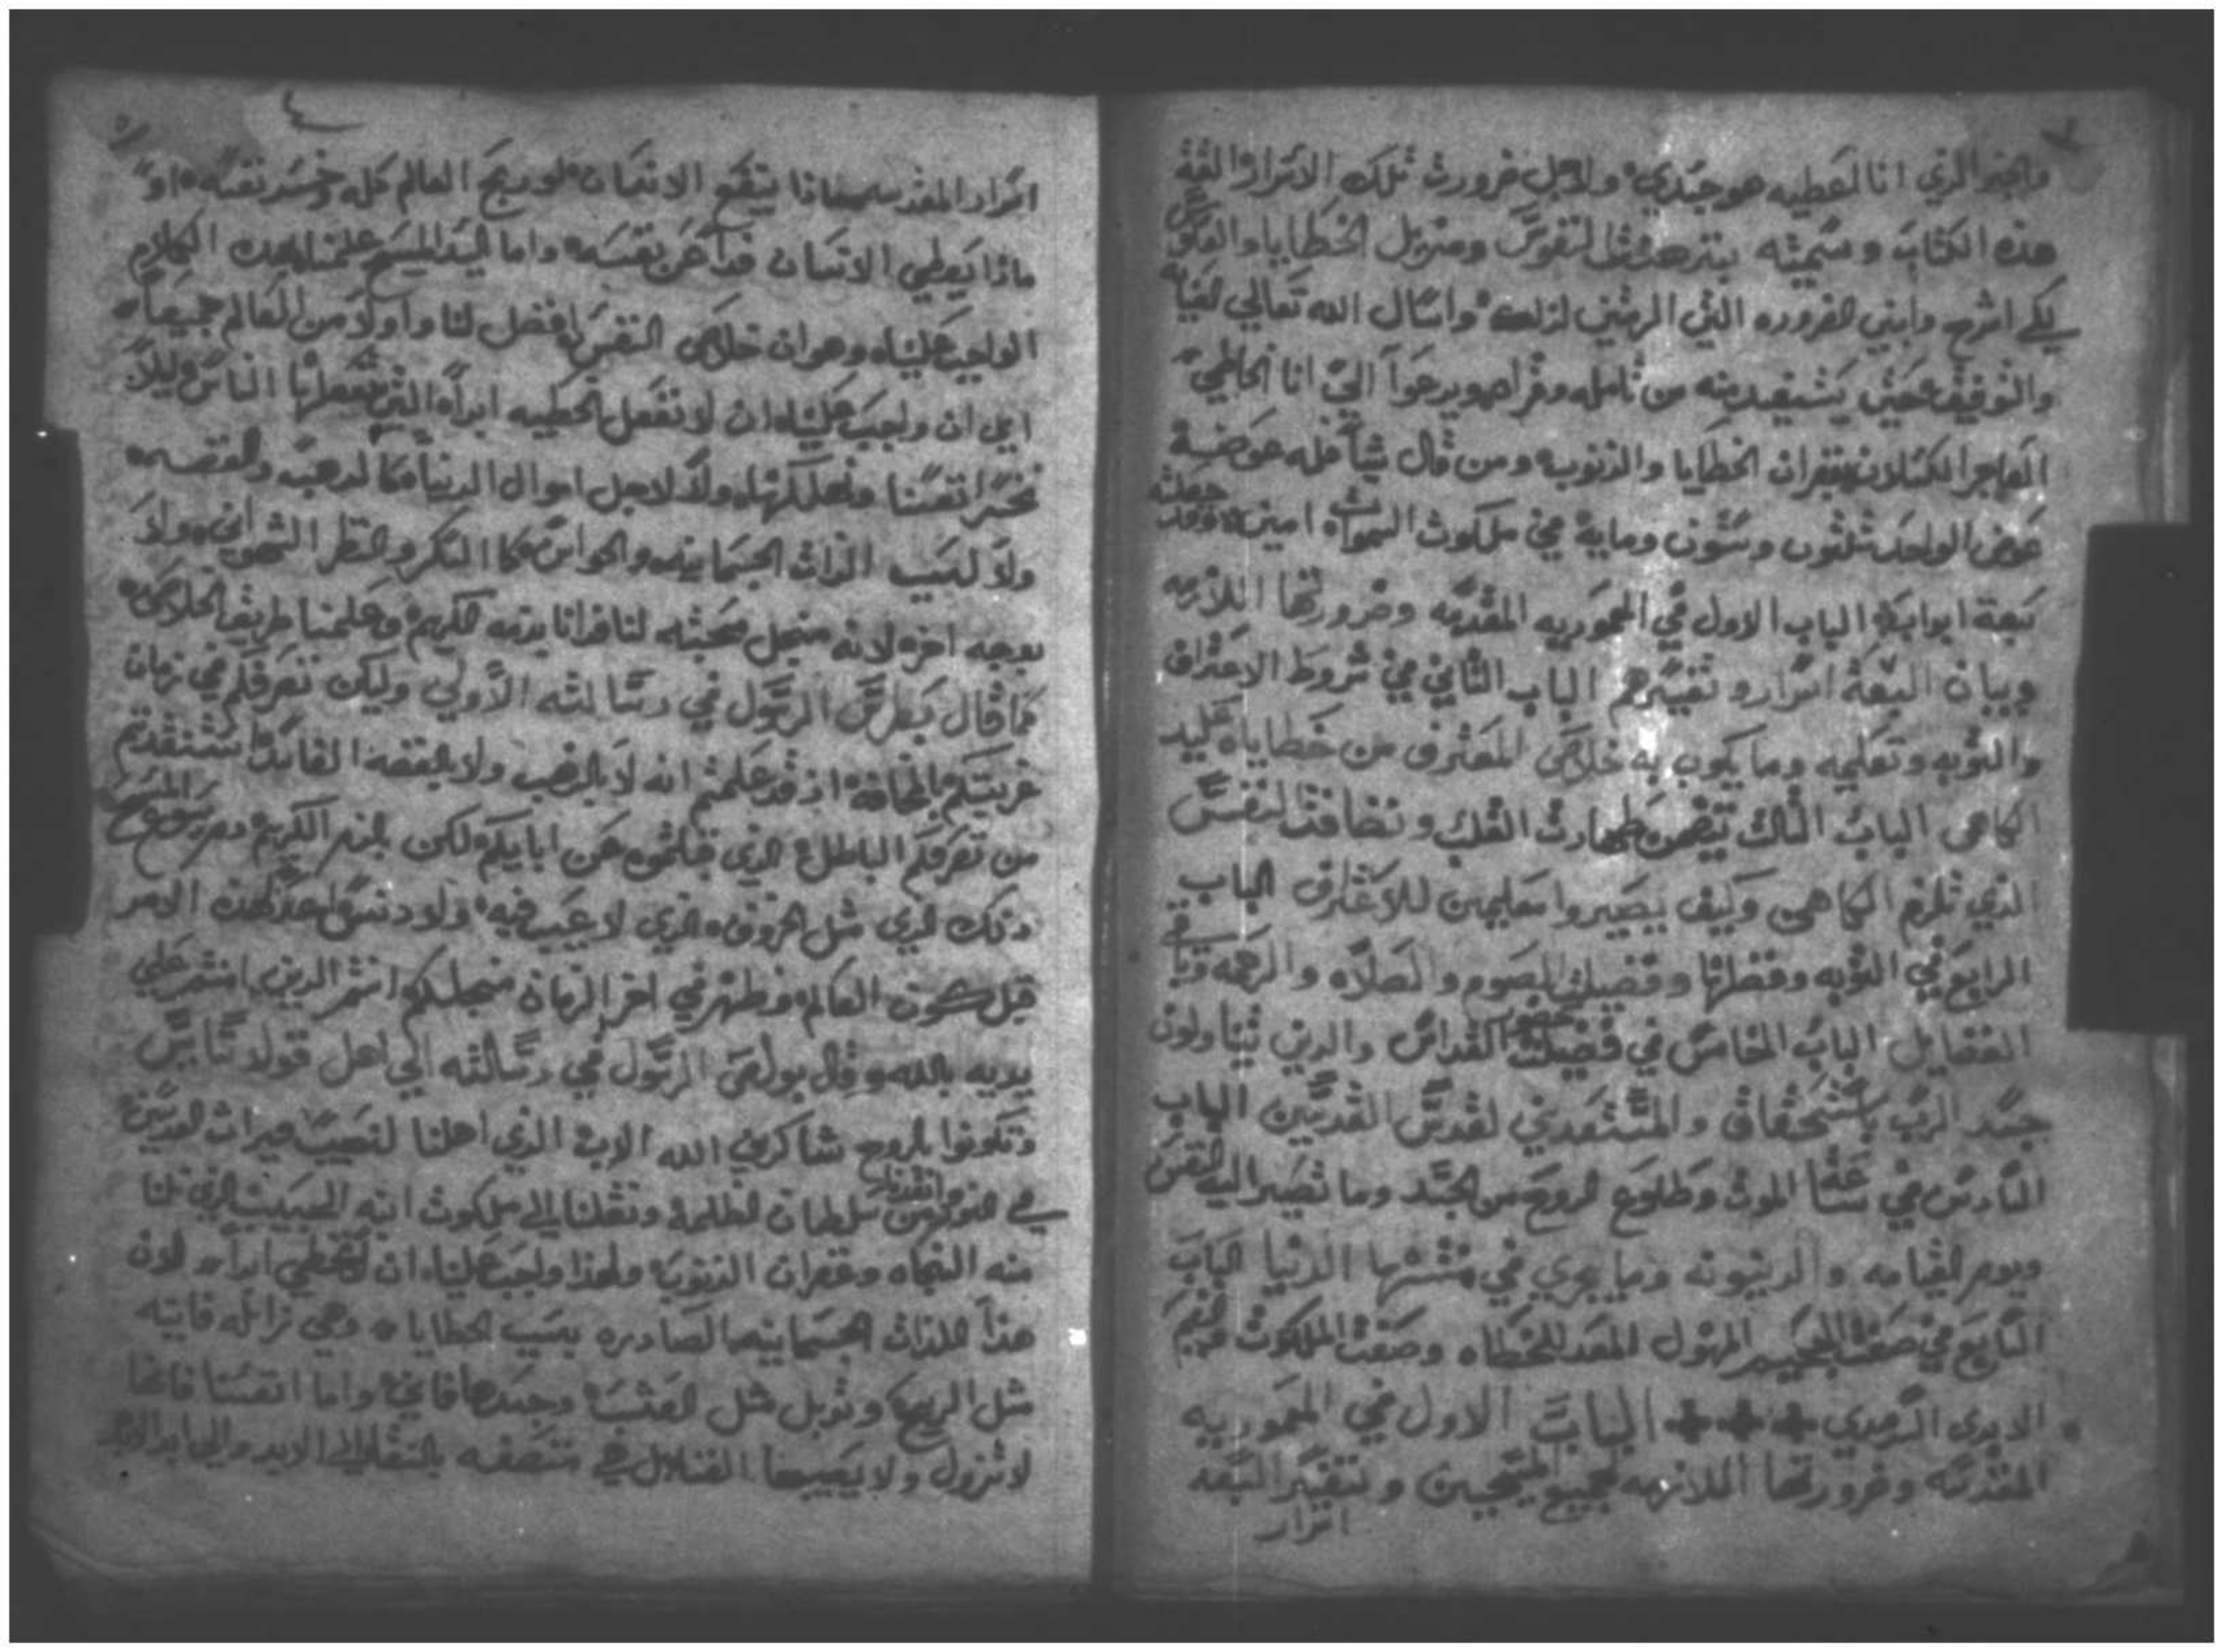 والخبز الذي انا اعطيه هو جسدي ولاجل ضرورت تلك الاسرار الفة
هذه الكتاب وسميته بنزهت النفوس ومزيل الخطايا والعكوس
لكي اشرح وابين الضروره التي واسال الله تعالي
والتوفيق يستفيد منه من تامله وقراه ويدعوا الي انا الخاطي
العاجز الكسلان بغفران الخطايا والذنوب ومن قال شيا فله عوضه
عوض الواحد ثلثون وستون وماية في ملكوت السموات امين وقد جعلته
سبعة ابواب الباب الاول في المعموديه المقدسه وضرورتها اللازمه
وبيان السبعة اسرار وتفسيرهم الباب الثاني في شروط الاعتراف
والتوبه وتعليمه وما يكون به خلاص المعترف من خطاياه عليد
الكاهن الباب الثالث يتضمن طهارت القلب ونظافت النفس
الذي تلزم الكاهن وكيف يصيروا معلمين للاعتراف الباب
الرابع في التوبه وفضلها وفضيلت الصوم والصلاه والرحمه وباقي
الفضايل الباب الخامس في فضيلت حضور القداس والدين يتناولون
جسد الرب باستحقاق والمستعدين لقدس القديسين الباب
السادس في ساعة الموت وطلوع الروح من الجسد وما تصير اليه النفس
ويوم القيامه والدينونه وما يجري في منتهاء الدنيا الباب
السابع في صفت الجحيم المهول المعد للخطاه وصفت الملكوت
الابدي السرمدي + + + الباب الاول في المعموديه
المقدسه وضرورتها اللازمه لجميع المسيحيين وتفسير السبعه
اسرار
٤
اسرار المقدسه ماذا ينفع الانسان لو ربح العالم كله وخسر نفسه او
ماذا يعطي الانسان فداً عن نفسه واما السيد المسيح علمنا بهذه الكلام
الواجب علينا وهو ان خلاص النفس افضل لنا واولا من العالم جميعاً
اعني ان واجب علينا ان لا نفعل الخطيه ابداً التي تفعلها الناس ليلا
نخسر انفسنا ونهلكها ولا لاجل اموال الدنيا كالدهب والفضه
ولا لسبب الذات الجسمانيه والحواس كا السكر والنظر الشهواني ولا
بوجه اخر لانه من اجل محبته لنا فدانا بدمه الكريم وعلمنا طريق الخلاص
كما قال بطرس الرسول في رسالته الاولي وليكن تصرفكم في زمان
غربتكم بالمخافة اذ قد علمتم انه لا بالذهب ولا بالفضه الفاسدة استنقدتم
من تصرفكم الباطل الذي قبلتموه عن ابايكم لكن بالدم الكريم دم يسوع المسيح
ذلك الذي مثل الخروف الذي لا عيب فيه ولا دنس لهذه الامر
قبل كون العالم وظهر في اخر الزمان من اجلكم انتم الدين امنتم علي
يديه بالله وقال بولص الرسول في رسالته الي اهل قولاسايس
وتكونوا بالروح شاكرين الله الاب الذي اهلنا لنصيب ميراث القديسين
في النور انقذنا من سلطان الظلمة ونقلنا الي ملكوت ابنه الحبيب الذي لنا
منه النجاه وغفران الذنوب ولهذا واجب علينا ان لا نخطي ابداً لان
هذا اللذات الجسمانيه الصادره بسبب الخطايا وهي زائله فانيه
مثل الريح وتذبل مثل العشب وجسدها فاني واما انفسنا فانها
لا تزول ولا الابد والي ابد الابد